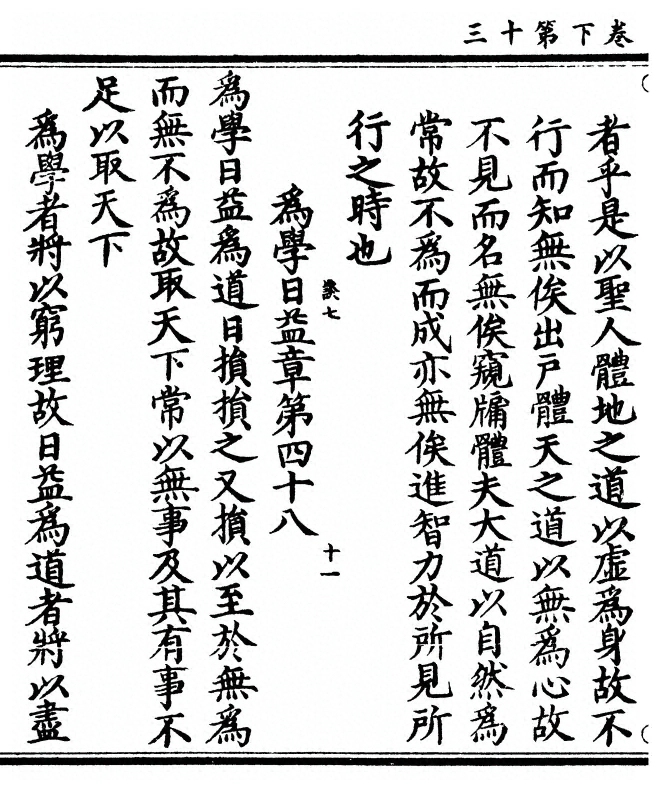 三十第下卷
者乎是以聖人體地之道以虛爲身故不
行而知無俟出戸體天之道以無爲心故
不見而名無俟窺牖體夫大道以自然爲
常故不爲而成亦無俟進智力於所見所
行之時也
爲學日益章第四十八
十一
爲學日益爲道日損損之又損以至於無爲
而無不爲故取天下常以無事及其有事不
足以取天下
爲學者將以窮理故日益爲道者將以盡